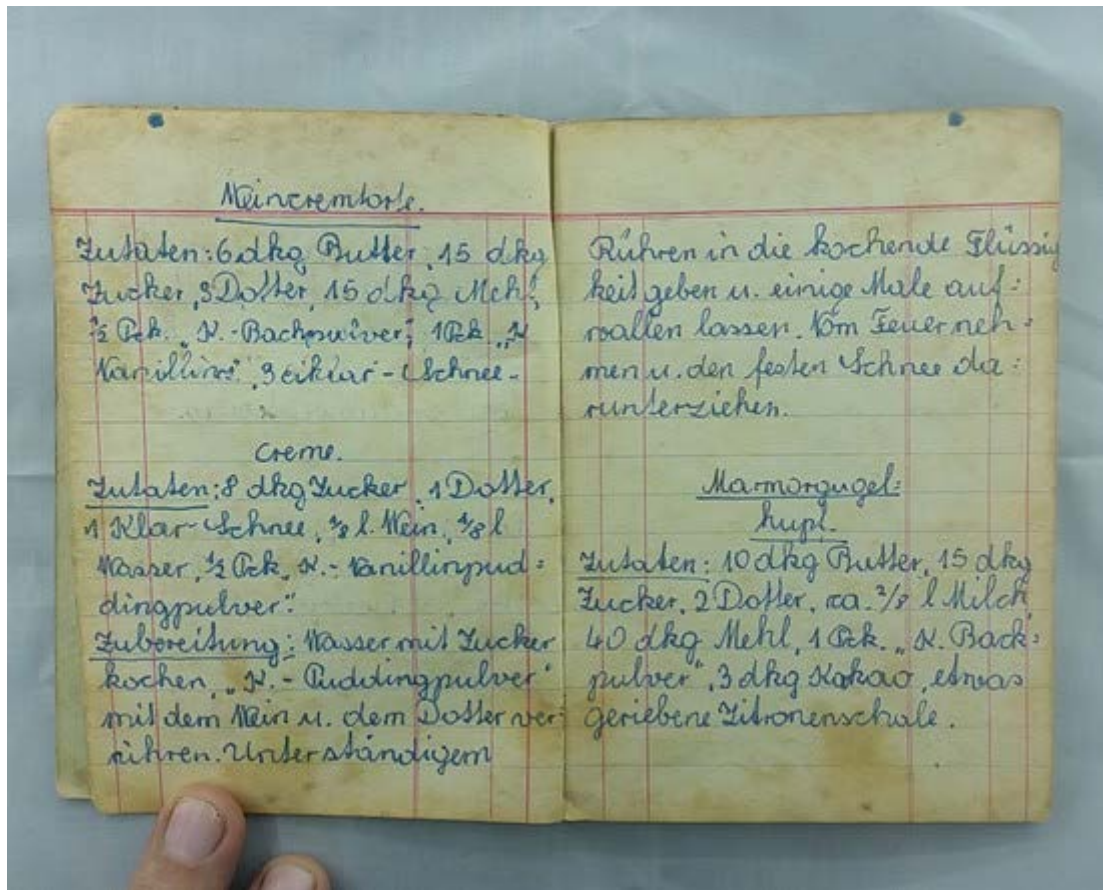 Weincremtorte.
Zutaten: 6 dkg Butter, 15 dkg
Zucker, 3 Dotter, 15 dkg Mehl,
½ Pck. „K.-Backpulver", 1 Pck „K
Vanillins", 3 eiklar - Schnee.
Creme.
Zutaten: 8 dkg Zucker, 1 Dotter,
1 Klar-Schnee, ⅛ l. Wein, ⅛ l
Wasser, ½ Pck „K.-Vanillinpud=
dingpulver".
Zubereitung: Wasser mit Zucker
kochen, „K.-Puddingpulver"
mit dem Wein u. dem Dotter ver=
rühren. Unter ständigem
Rühren in die kochende Flüssig
keit geben u. einige Male auf=
wallen lassen. Vom Feuer neh=
men u. den festen Schnee da=
runterziehen.
Marmorgugel=
hupf.
Zutaten: 10 dkg Butter, 15 dkg
Zucker, 2 Dotter, ca. ²/8 l Milch
40 dkg Mehl, 1 Pck. „K. Back=
pulver", 3 dkg Kakao, etwas
geriebene Zitronenschale.